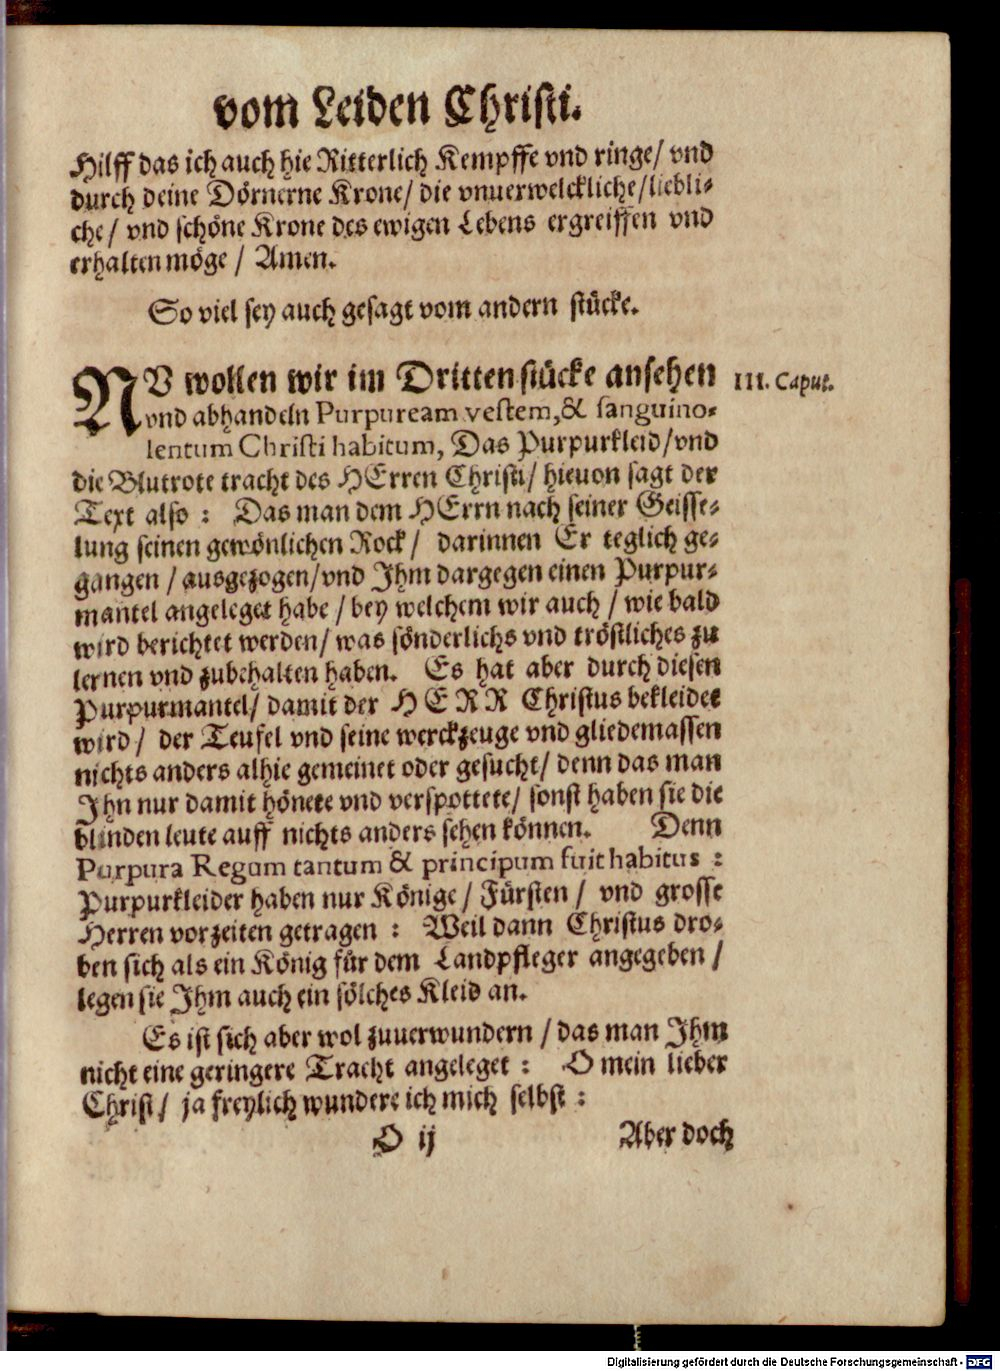 vom Leiden Christi.
Hilff das ich auch hie Ritterlich Kempffe vnd ringe/ vnd
durch deine Dörnerne Krone/ die vnuerwelckliche/liebli-
che/ vnd schöne Krone des ewigen Lebens ergreiffen vnd
erhalten möge / Amen.
So viel sey auch gesagt vom andern stücke.
NV wollen wir im Dritten stücke ansehen
III. Caput.
vnd abhandeln Purpuream vestem,& sanguino-
lentum Christi habitum, Das Purpurkleid/vnd
die Blutrote tracht des HErren Christi/ hieuon sagt der
Text also : Das man dem HErrn nach seiner Geisse-
lung seinen gewönlichen Rock/ darinnen Er teglich ge-
gangen / ausgezogen/vnd Ihm dargegen einen Purpur-
mantel angeleget habe / bey welchem wir auch / wie bald
wird berichtet werden/ was sönderlichs vnd tröstliches zu
lernen vnd zubehalten haben. Es hat aber durch diesen
Purpurmantel/ damit der HERR Christus bekleidet
wird/ der Teufel vnd seine werckzeuge vnd gliedemassen
nichts anders alhie gemeinet oder gesucht/ denn das man
Ihn nur damit hönete vnd verspottete/ sonst haben sie die
blinden leute auff nichts anders sehen können. Denn
Purpura Regum tantum & principum fuit habitus :
Purpurkleider haben nur Könige/ Fürsten / vnd grosse
Herren vorzeiten getragen : Weil dann Christus dro-
ben sich als ein König für dem Landpfleger angegeben /
legen sie Ihm auch ein sölches Kleid an.
Es ist sich aber wol zuuerwundern / das man Ihm
nicht eine geringere Tracht angeleget : O mein lieber
Christ/ ja freylich wundere ich mich selbst :
O ij
Aber doch
Digitalisierung gefördert durch die Deutsche Forschungsgemeinschaft - DFG